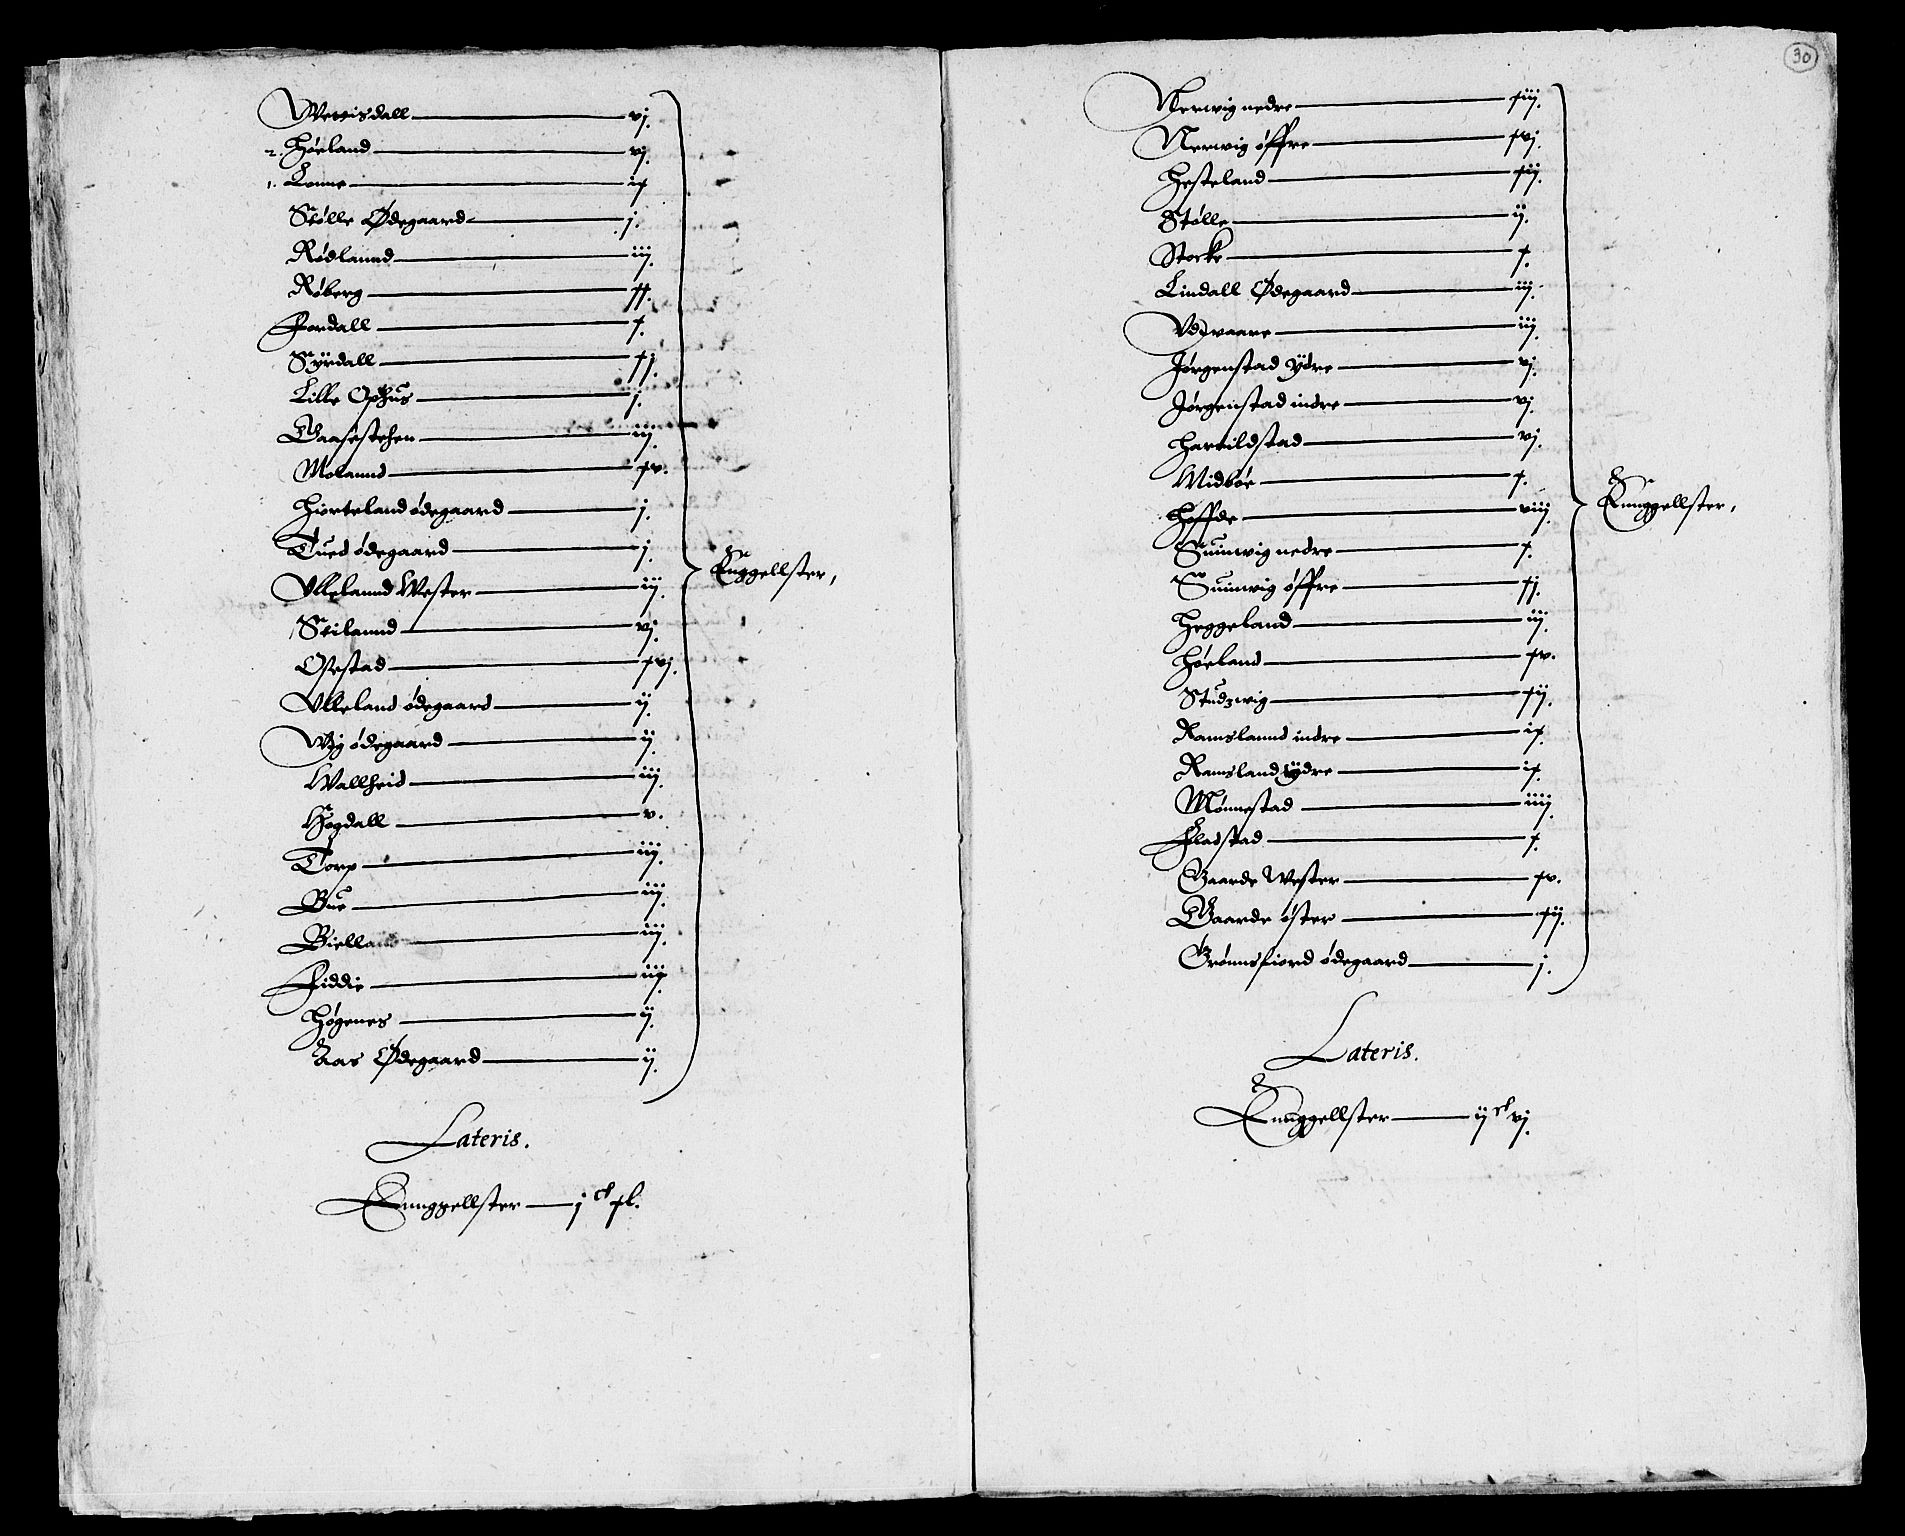 Werrisdall — vj.
2. Høeland — vj.
1. Konne — ix
Stølle Ødegaard — j.
Rødlannd — iij.
Røberg — xx.
Fordall — x.
Syrdall — xj.
Lille Ophus — j.
Gaasestehen — iij.
Molannd — xv.
Hiorteland ødegaard — j.
Tued ødegaard — j.
Vllelannd Wester — iij.
Stilannd — vj.
Osestad — xvj.
Vlleland ødegaard — ij.
Wiig ødegaard — ij.
Wallheid — iij.
Høgdall — v.
Torp — iij.
Bue — iij.
Bielland — iij.
Fiddie — iij.
Høgenes — ij.
Aas Ødegaard — ij.
Enggellster,
Lateris.
Ennggellster — j c xl.
30
Nerwig nedre — xiij.
Nerwig øffre — xvj.
Hesteland — xij.
Stølle — ij.
Stocke — x.
Lindall Ødegaard — iij.
Vdtvaare — iij.
Jørgenstad ydre — vj.
Jørgenstad indre — vj.
Harrildstad — vj.
Midbøe — x.
Høffde — viij.
Suinwig nedre — x.
Suinwig øffre — xj.
Heggeland — iij.
Høeland — xv.
Studzwig — xij.
Ramslannd indre — ix.
Ramsland ydre — ix.
Mønnestad — iiij.
Fladstad — x.
Gaarde Wester — xv.
Gaarde øster — xij.
Grønnsfiord ødegaard — j.
Ennggellster,
Lateris.
Ennggellster — ij c vj.